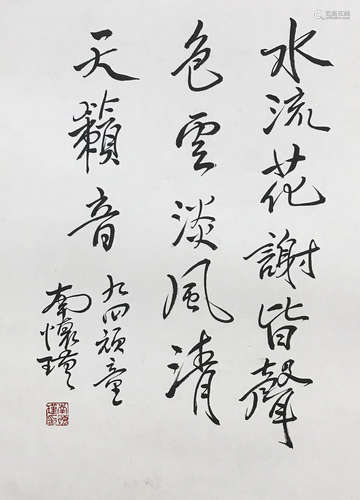 水流花謝皆聲
色雲淡風清
天籟音
九四頑童
南懷瑾